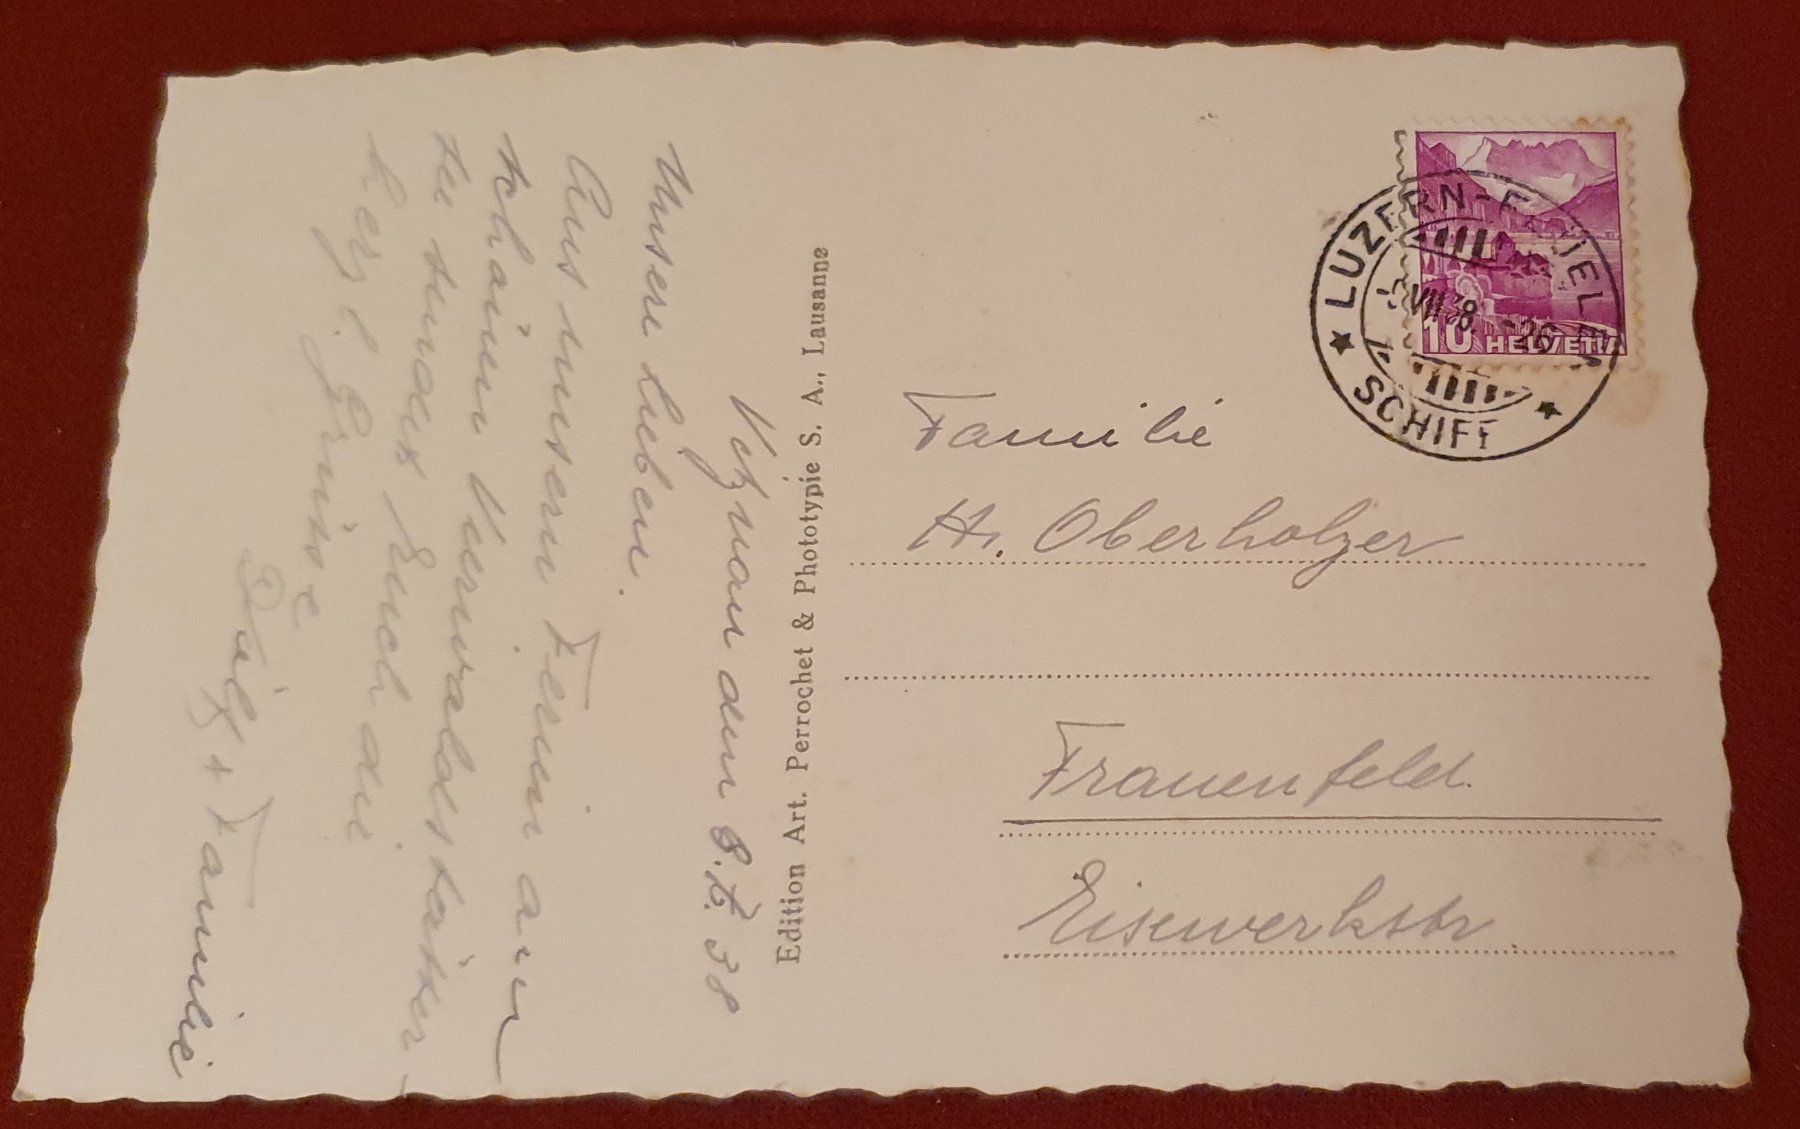 Vitznau den 8.7. 38
Unsere Lieben.
Aus unsern Ferien am
schönen Vierwaldstätter
see senden Euch die
herzl. Grüsse
+ Familie
Edition Art. Perrochet & Phototypie S. A., Lausanne
LUZERN-FLÜELEN
VII 38
SCHIFF
10 HELVETIA
Familie
H. Oberholzer
Frauenfeld.
Eisenwerkstr